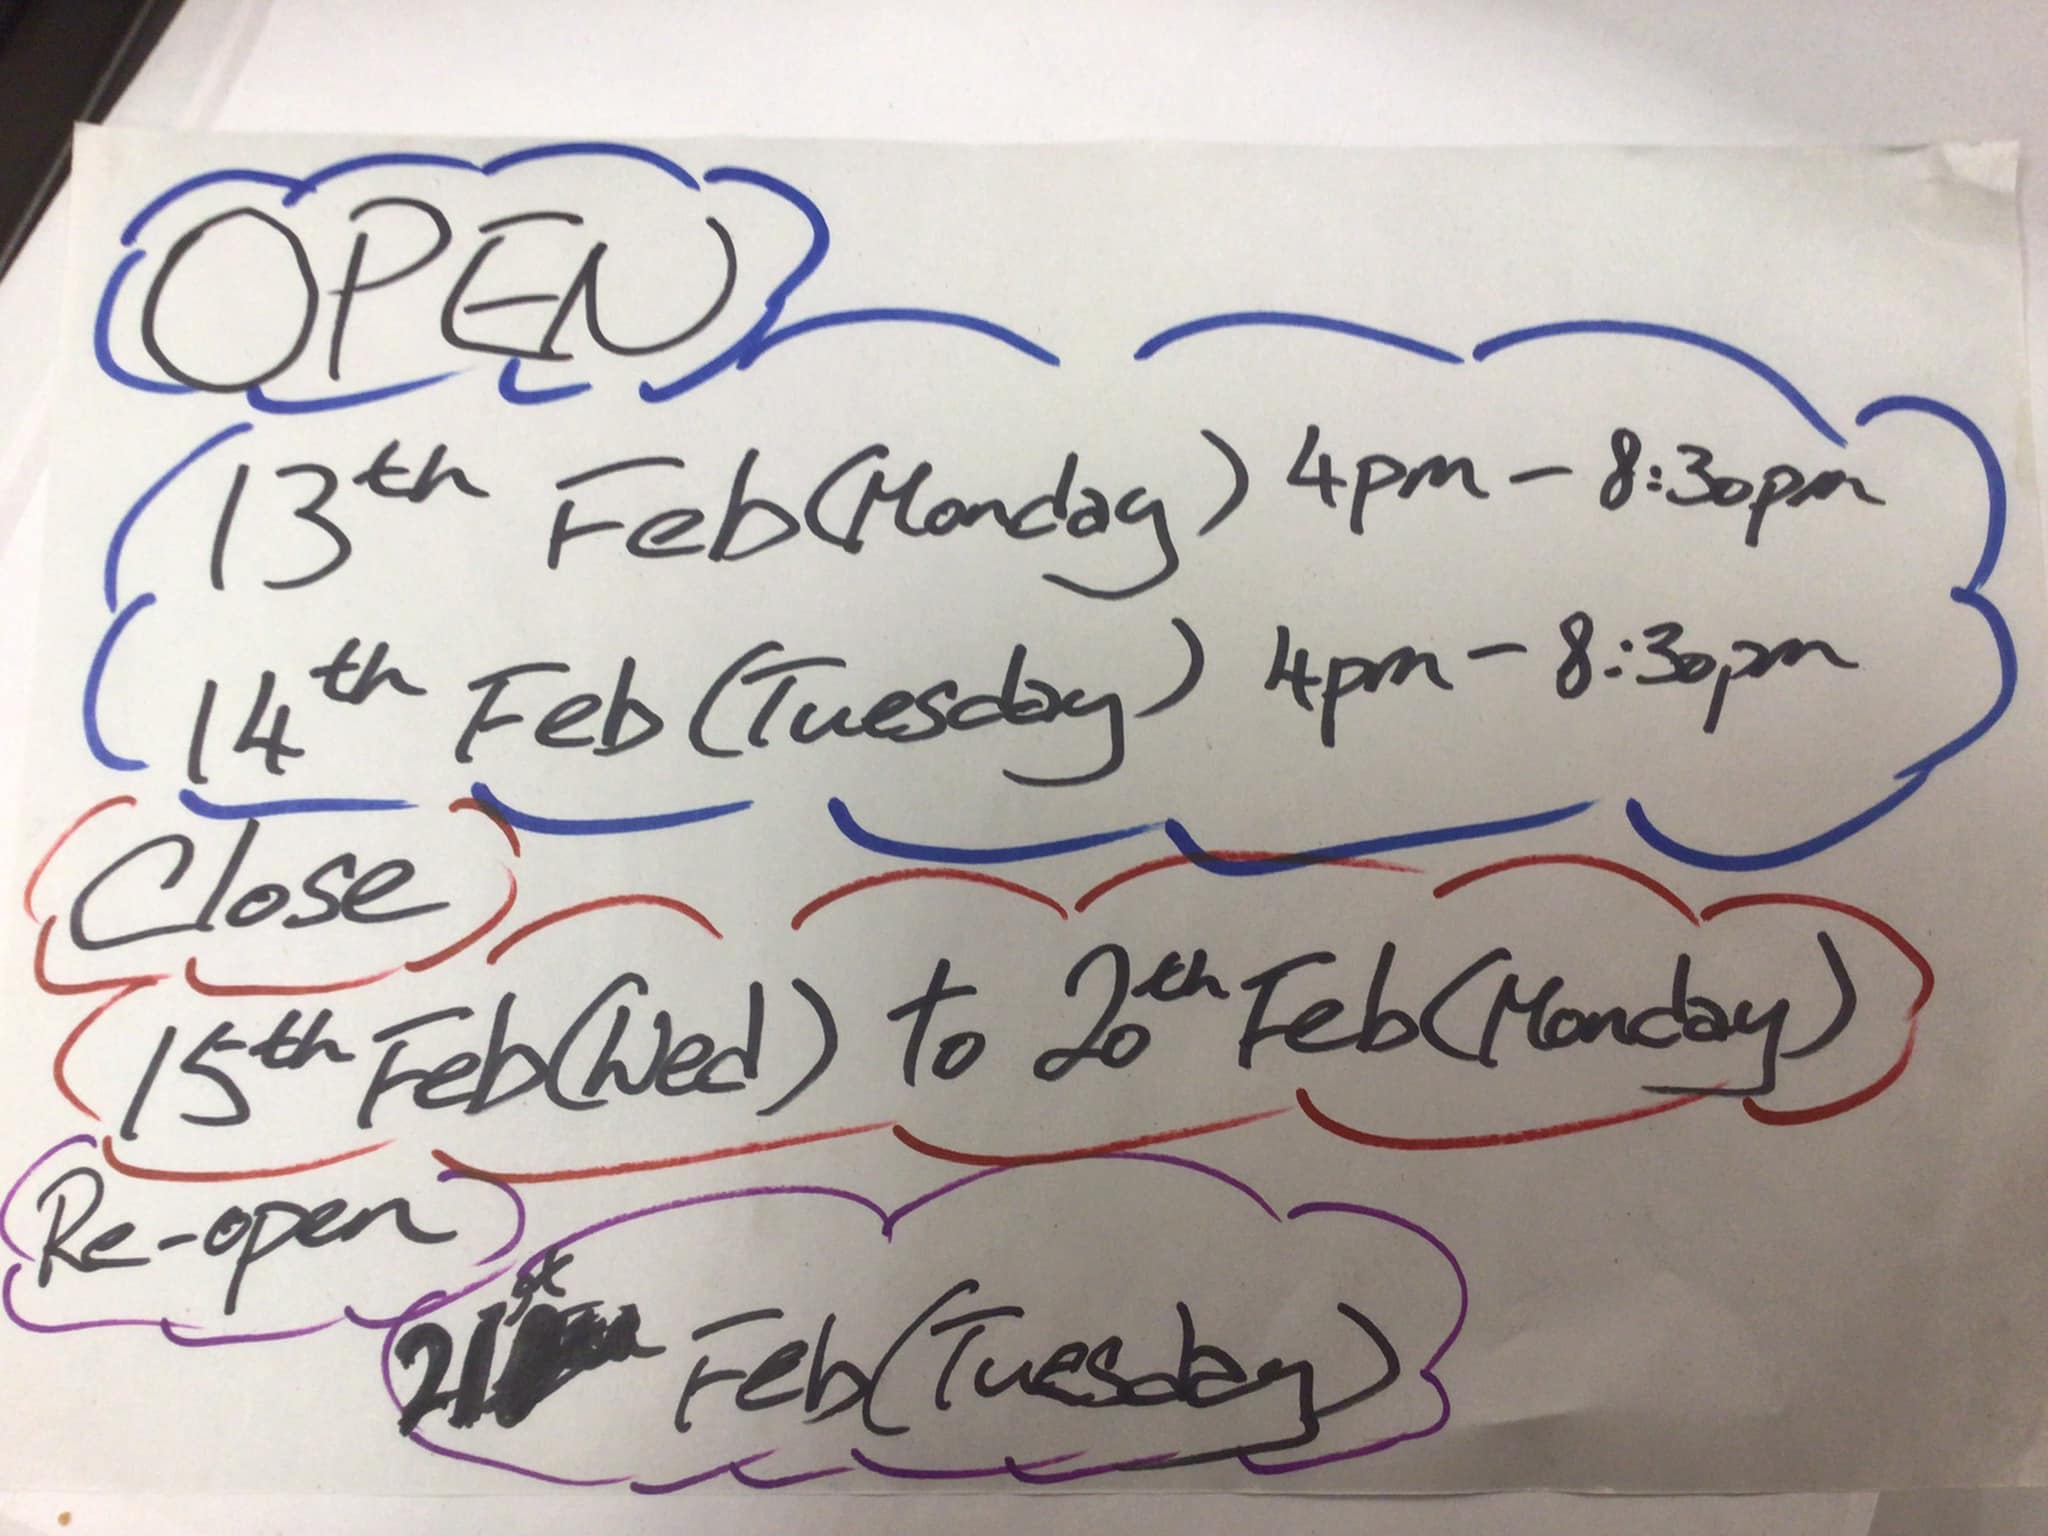 OPEN
13th Feb (Monday) 4pm - 8:30pm
14th Feb (Tuesday) 4pm - 8:30pm
Close
15th Feb (Wed) to 20th Feb (Monday)
Re-open
21st Feb (Tuesday)